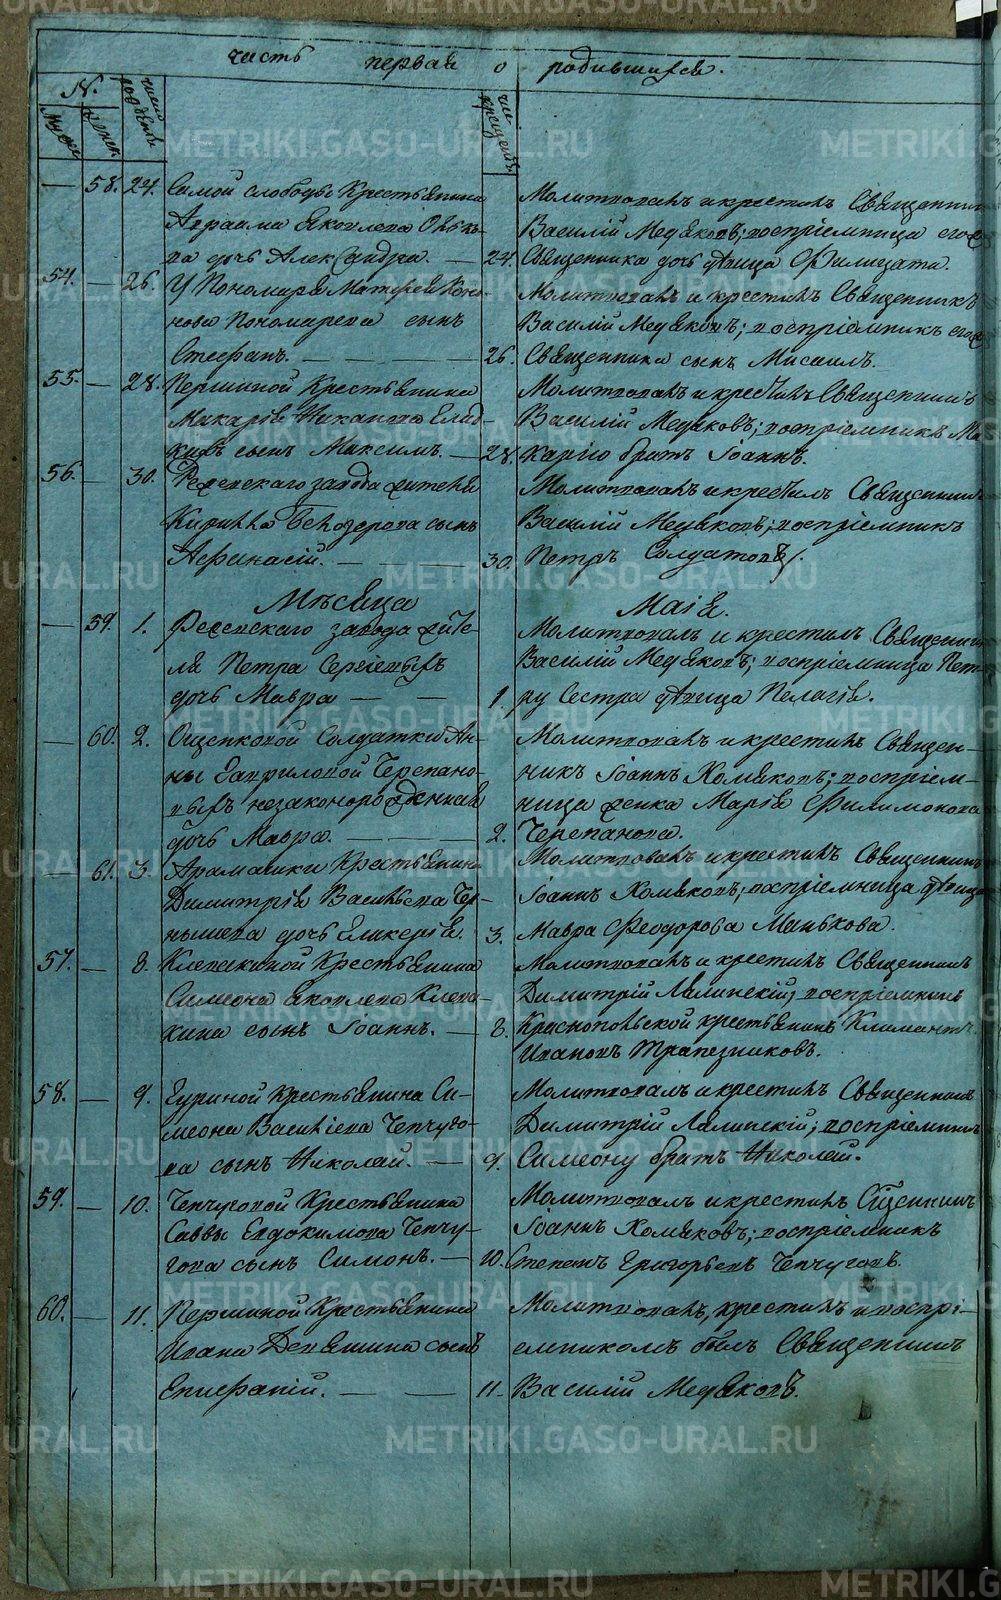 часть первая о родившихся.
N.
Мужес
Женск
число рожденія
чис крещенія
— 58. 24. Самой слободы Крестьянина
Авраама Яковлева
ва дочь Александра. — 24.
Молитвовалъ и крестилъ Священник
Василій Медяковъ; воспріемница его
Священника дочь дѣвица Филицата.
54. — 26. У Пономаря Матфея Коно-
нова Пономарева сынъ
Стефанъ. — — — 26.
Молитвовалъ и крестилъ Священникъ
Василій Медяковъ; воспріемникъ его
Священника сынъ Мисаилъ.
55. — 28. Першиной Крестьянина
Макарія
сынъ Максимъ. — 28.
Молитвовалъ и крестилъ Священникъ
Василій Медяковъ; воспріемникъ Ма-
карію братъ Іоаннъ.
56. — 30. Режевскаго завода жителя
Кирилла Белозерова сынъ
Афанасій. — — — 30.
Молитвовалъ и крестилъ Священник
Василій Медяковъ; воспріемникъ
Петръ Солдатовъ.
Мѣсяца Маія.
— 59. 1. Режевскаго завода жите-
ля Петра Сергіевыхъ
дочь Мавра — — 1.
Молитвовалъ и крестилъ Священник
Василій Медяковъ; воспріемница Пет-
ру Сестра дѣвица Пелагія.
— 60. 2. Ощепковой Солдатки Ан-
ны Гавриловой Черепано-
выхъ незаконорожденная
дочь Мавра. — 2.
Молитвовалъ и крестилъ Священ-
никъ Іоаннъ Хомяковъ; воспріем-
ница женка Марія Филимонова
Черепанова.
— 61. 3. Арамашки Крестьянина
Димитрія Васильева Чер-
нышева дочь Гликерія. 3.
Молитвовалъ и крестилъ Священникъ
Іоаннъ Хомяковъ; воспріемница дѣвица
Мавра Феодорова Манькова.
57. — 8. Клевакиной Крестьянина
Симеона Яковлева Клева-
кина сынъ Іоаннъ. — 8.
Молитвовалъ и крестилъ Священникъ
Димитрій Ляпинскій; воспріемникъ
Краснопольской крестьянинъ Климантъ
Ивановъ Трапезниковъ.
58. — 9. Гуриной Крестьянина Си-
меона Василіева Чепчуго-
ва сынъ Николай. — 9.
Молитвовалъ и крестилъ Священникъ
Димитрій Ляпинскій; воспріемникъ
Симеону братъ Николай.
59. — 10. Чепчуговой Крестьянина
Саввы Евдокимова Чепчу-
гова сынъ Симонъ. — 10.
Молитвовалъ и крестилъ Сщенникъ
Іоаннъ Хомяковъ; воспріемникъ
Степанъ Григорьевъ Чепчуговъ.
60. — 11. Першиной Крестьянина
Ивана Девяшина сынъ
Епифаній. — — 11.
Молитвовалъ, крестилъ и воспрі-
емникомъ былъ Священникъ
Василій Медяковъ.
METRIKI.GASO-URAL.RU